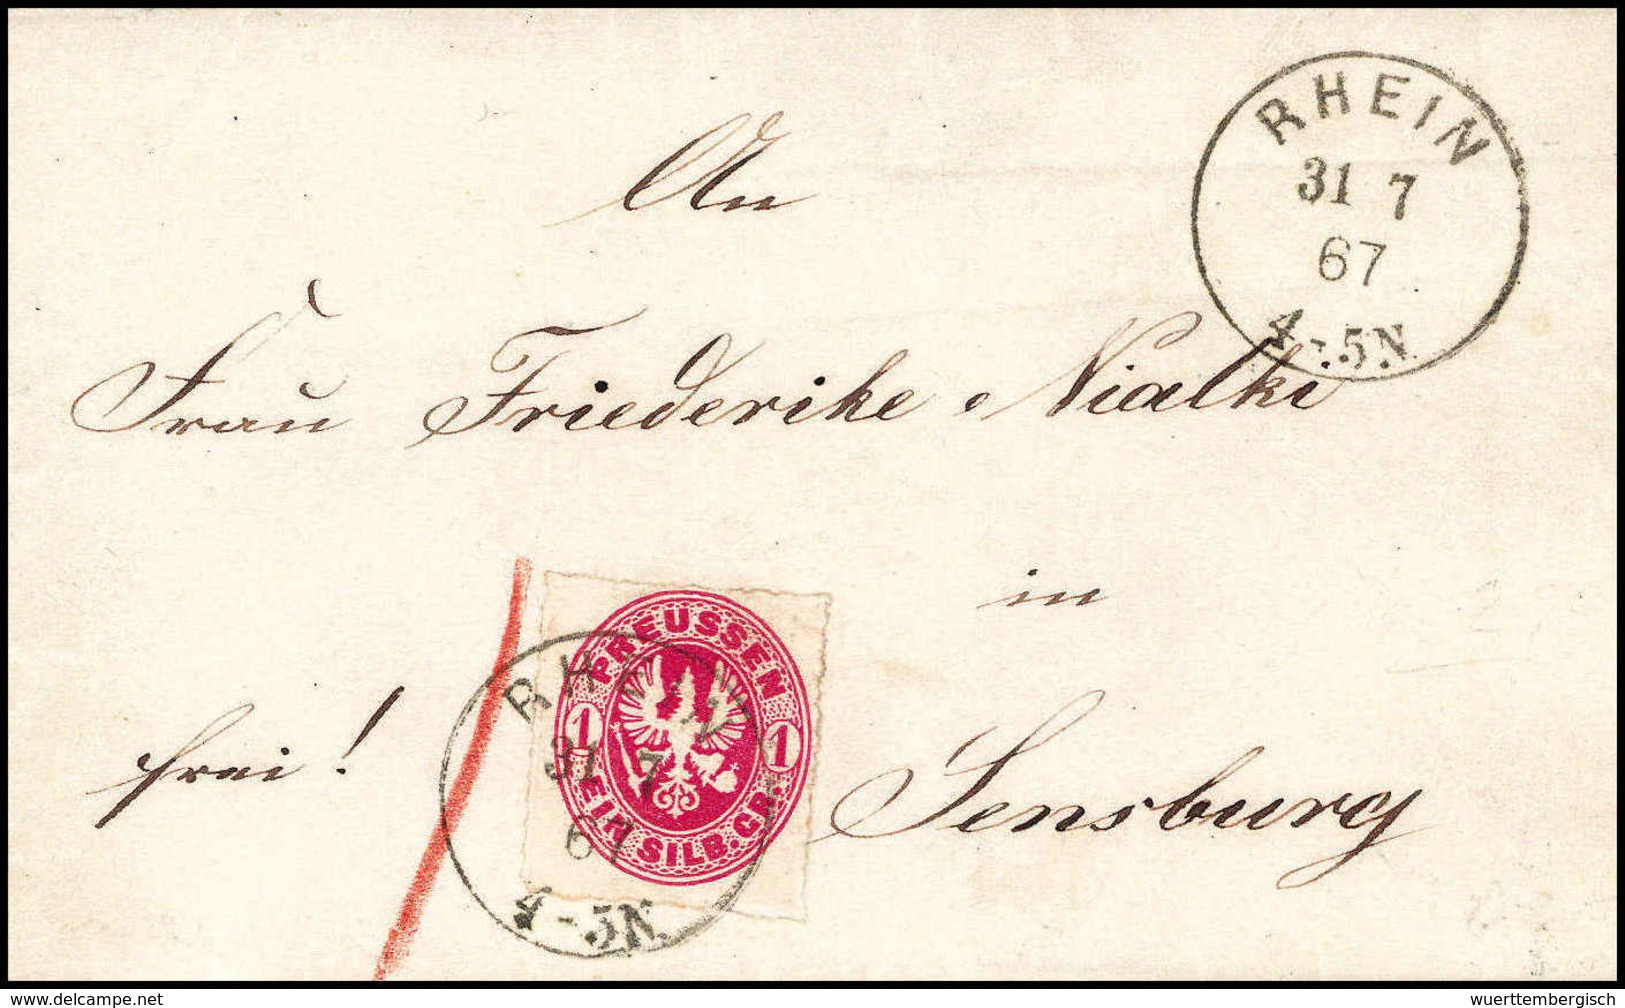 RHEIN
31 7
67
4-5N.
An
Frau Friederike Nialki
in
PREUSSEN
1 1
EIN SILB. GR.
RHEIN
31 7
67
4-5N.
frei!
Sensburg
www.delcampe.net
wuerttembergisch